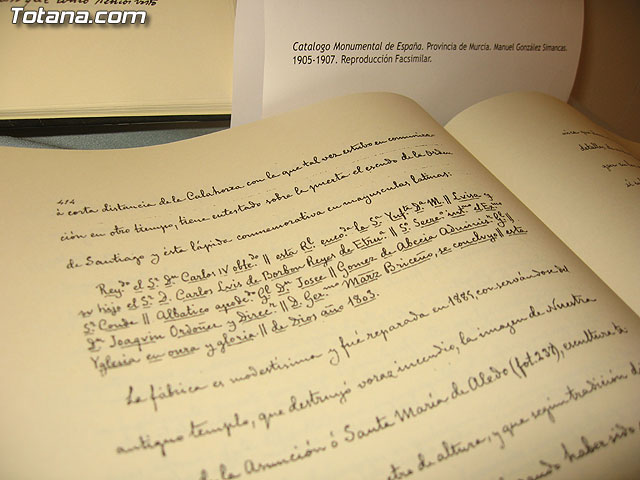 Totana.com
Catalogo Monumental de España. Provincia de Murcia. Manuel González Simancas.
1905-1907. Reproducción Facsimilar.
414
à corta distancia de la Calahorra con la que tal vez estubo en comunica-
ción en otro tiempo, tiene entestado sobre la puerta el escudo de la Orden
de Santiago y ésta lápida conmemorativa en mayusculas latinas:
Reyᵈᵒ el Sʳ Dⁿ Carlos IV || esta Rˡ encoᵈᵃ la Sʳᵃ Dᵃ M. || Lvisa y
sv hijo el Sʳ D. Carlos Lvis de Borbon Reyes de Etrvᵃ || Sʳ
Sʳ Conde || Albatico || Dⁿ Josce || Gomez de Abecia
Dⁿ Joaqvin Ordoñez y || D. Marz Briceño, se conclvyo || esta
Yglesia en onra y gloria || de Dios año 1803.
La fábrica es modestisima y fué reparada en 1885, conservándose del
antiguo templo, que destruyó voraz incendio, la imagen de Nuestra
de la Asunción ó Santa María de Aledo (fot. 237), escultura
metro de altura, y que según tradición
haber sido